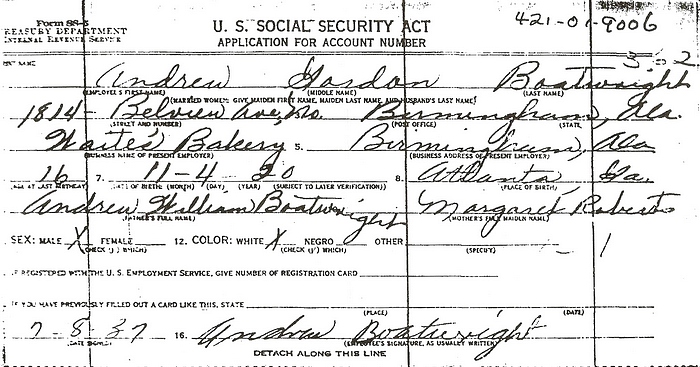 Form SS-5
TREASURY DEPARTMENT
INTERNAL REVENUE SERVICE
U. S. SOCIAL SECURITY ACT
APPLICATION FOR ACCOUNT NUMBER
421-01-9006
3 2
Andrew Gordon Boatwright
(EMPLOYEE'S FIRST NAME) (MIDDLE NAME) (LAST NAME)
(MARRIED WOMEN: GIVE MAIDEN FIRST NAME, MAIDEN LAST NAME, AND HUSBAND'S LAST NAME)
1814- Belview Ave, Birmingham, Ala.
(STREET AND NUMBER) (POST OFFICE) (STATE)
Waites Bakery 5. Birmingham, Ala
(BUSINESS NAME OF PRESENT EMPLOYER) (BUSINESS ADDRESS OF PRESENT EMPLOYER)
16 7. 11-4-20 8. Atlanta Ga.
AGE AT LAST BIRTHDAY) (DATE OF BIRTH: (MONTH) (DAY) (YEAR) (SUBJECT TO LATER VERIFICATION) (PLACE OF BIRTH)
Andrew William Boatwright Margaret Roberts
(FATHER'S FULL NAME) (MOTHER'S FULL MAIDEN NAME)
SEX: MALE X FEMALE 12. COLOR: WHITE X NEGRO OTHER 1
(CHECK (√) WHICH) (CHECK (√) WHICH) (SPECIFY)
IF REGISTERED WITH THE U. S. EMPLOYMENT SERVICE, GIVE NUMBER OF REGISTRATION CARD
IF YOU HAVE PREVIOUSLY FILLED OUT A CARD LIKE THIS, STATE
(PLACE) (DATE)
7-8-37 16. Andrew Boatwright
(DATE SIGNED) (EMPLOYEE'S SIGNATURE, AS USUALLY WRITTEN)
DETACH ALONG THIS LINE